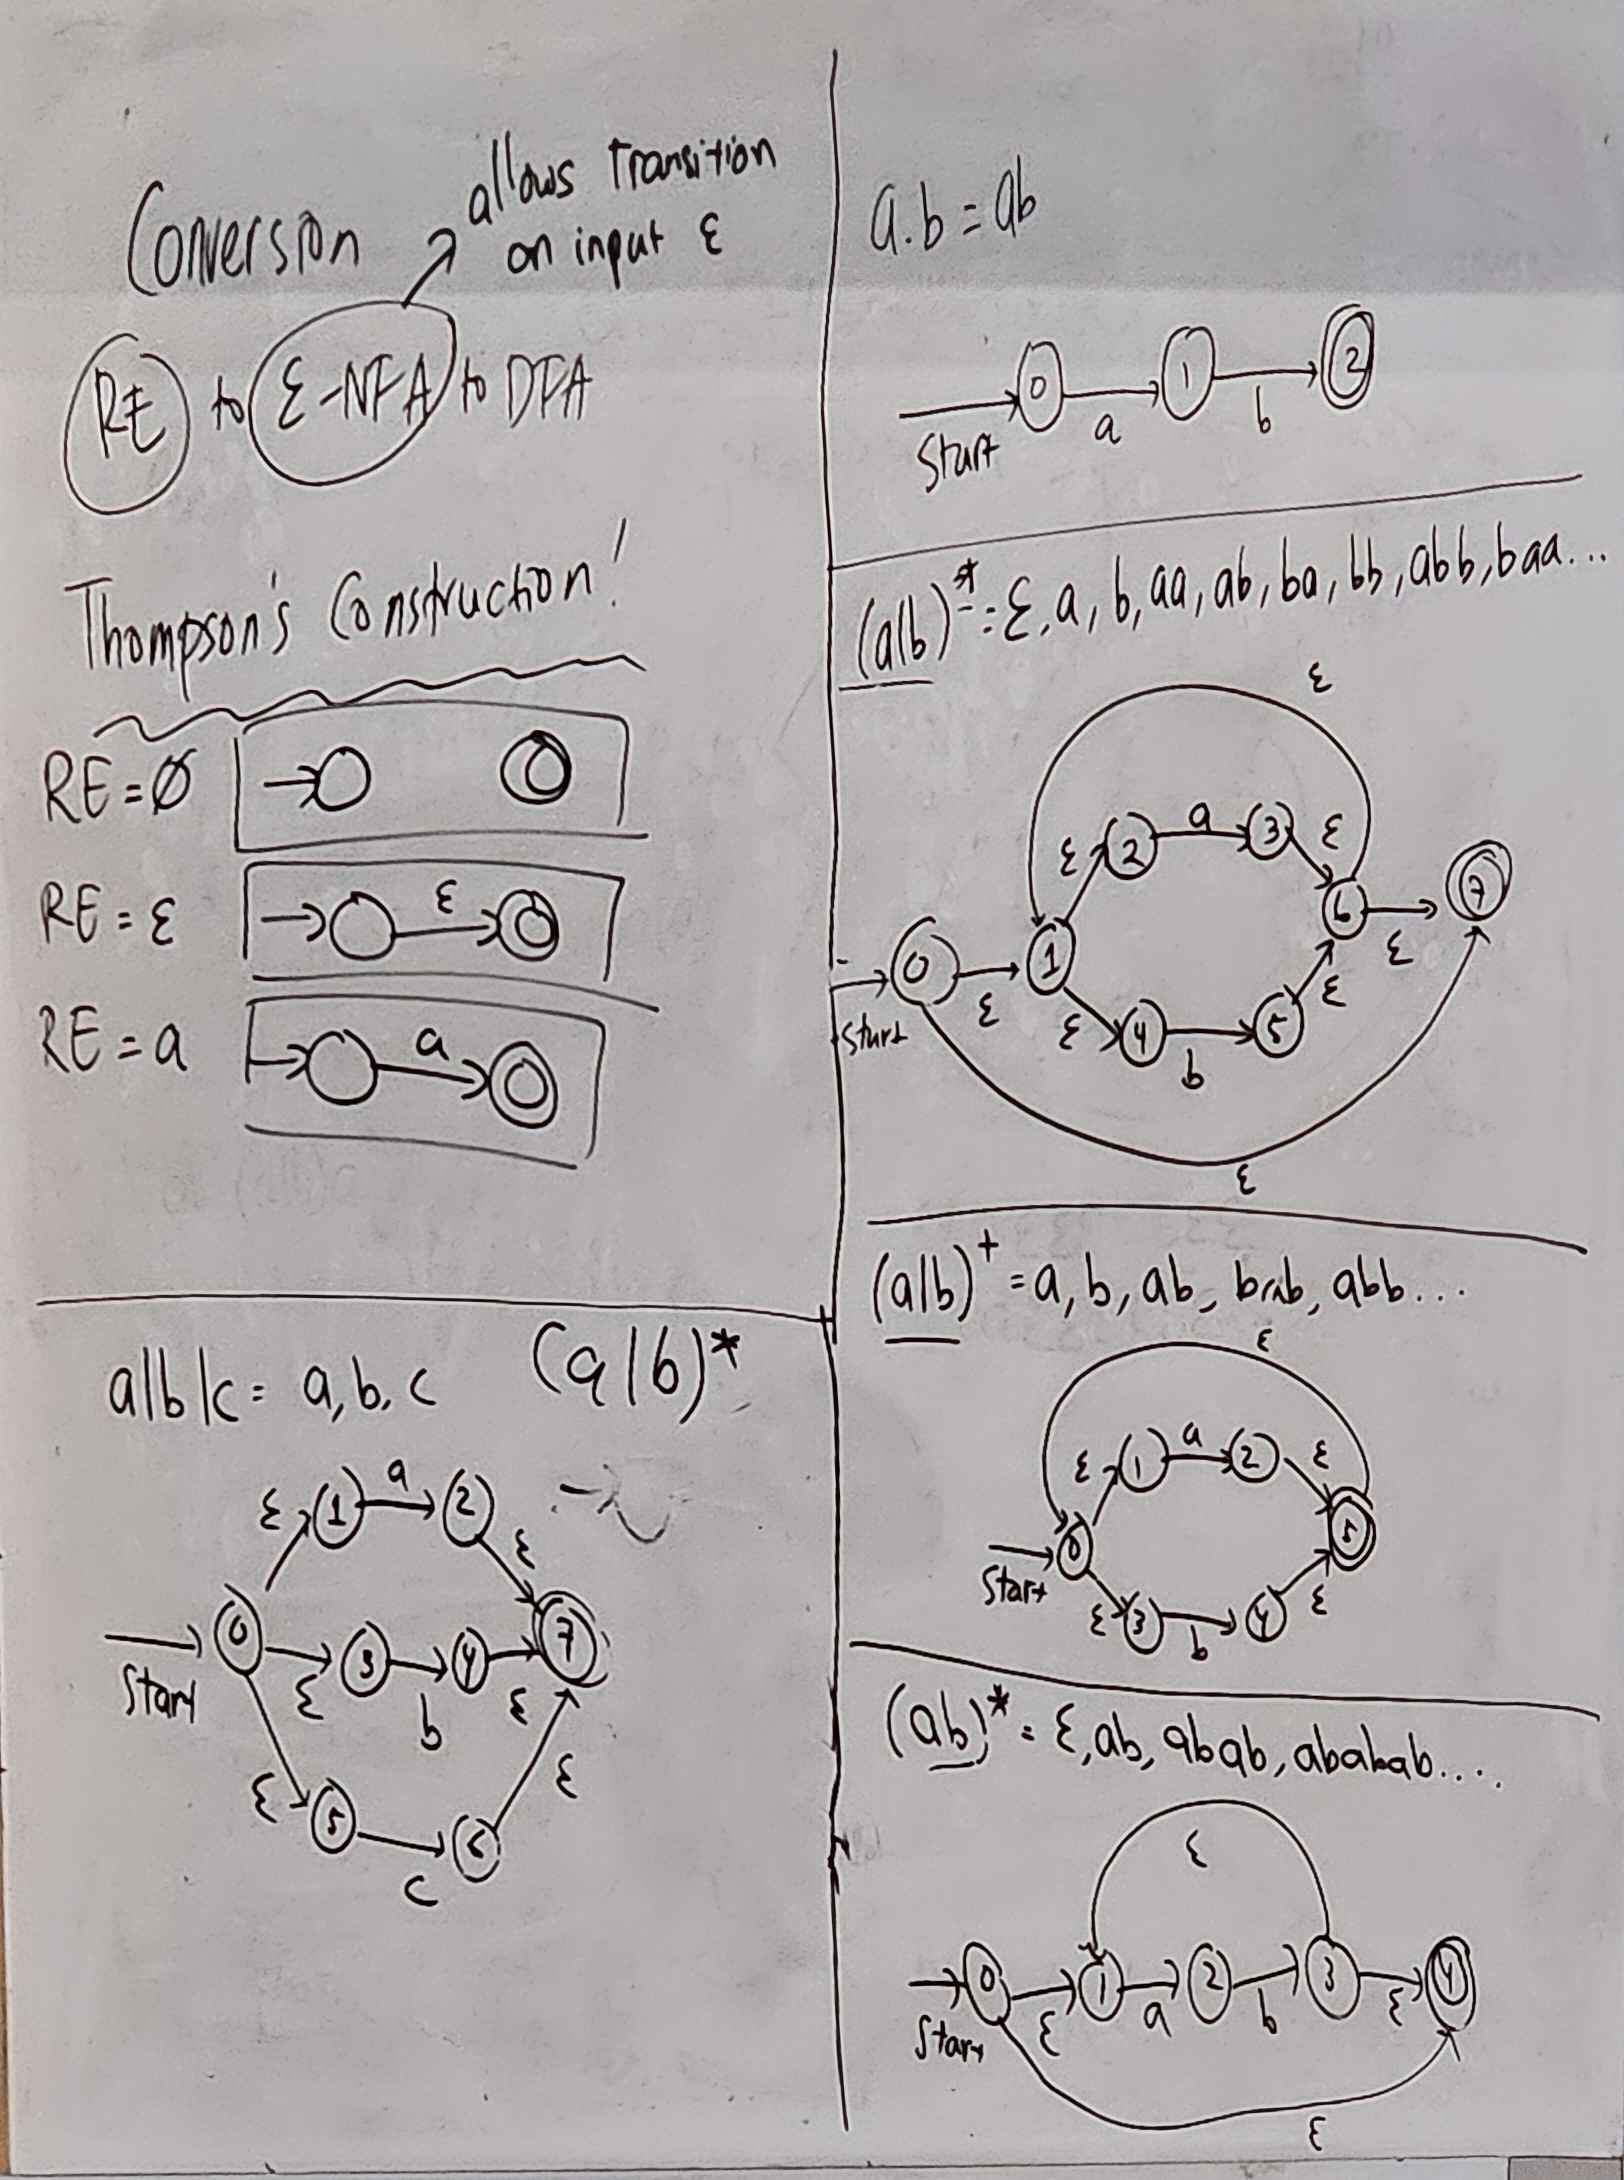 Conversion
allows transition
on input ε
RE to ε-NFA to DFA
Thompson's Construction!
RE = ∅
RE = ε
ε
RE = a
a
a|b|c = a, b, c
(a|b)*
ε 1 a 2 ε
Start 0 ε 3 b 4 ε 7
ε 5 c 6 ε
a.b = ab
Start 0 a 1 b 2
(a|b)* = ε, a, b, aa, ab, ba, bb, abb, baa...
ε
ε 2 a 3 ε
Start 0 ε 1 6 ε 7
ε 4 b 5 ε
ε
(a|b)+ = a, b, ab, abb...
ε
ε 1 a 2 ε
Start 0 5
ε 3 b 4 ε
(ab)* = ε, ab, abab, ababab....
ε
Start 0 ε 1 a 2 b 3 ε 4
ε